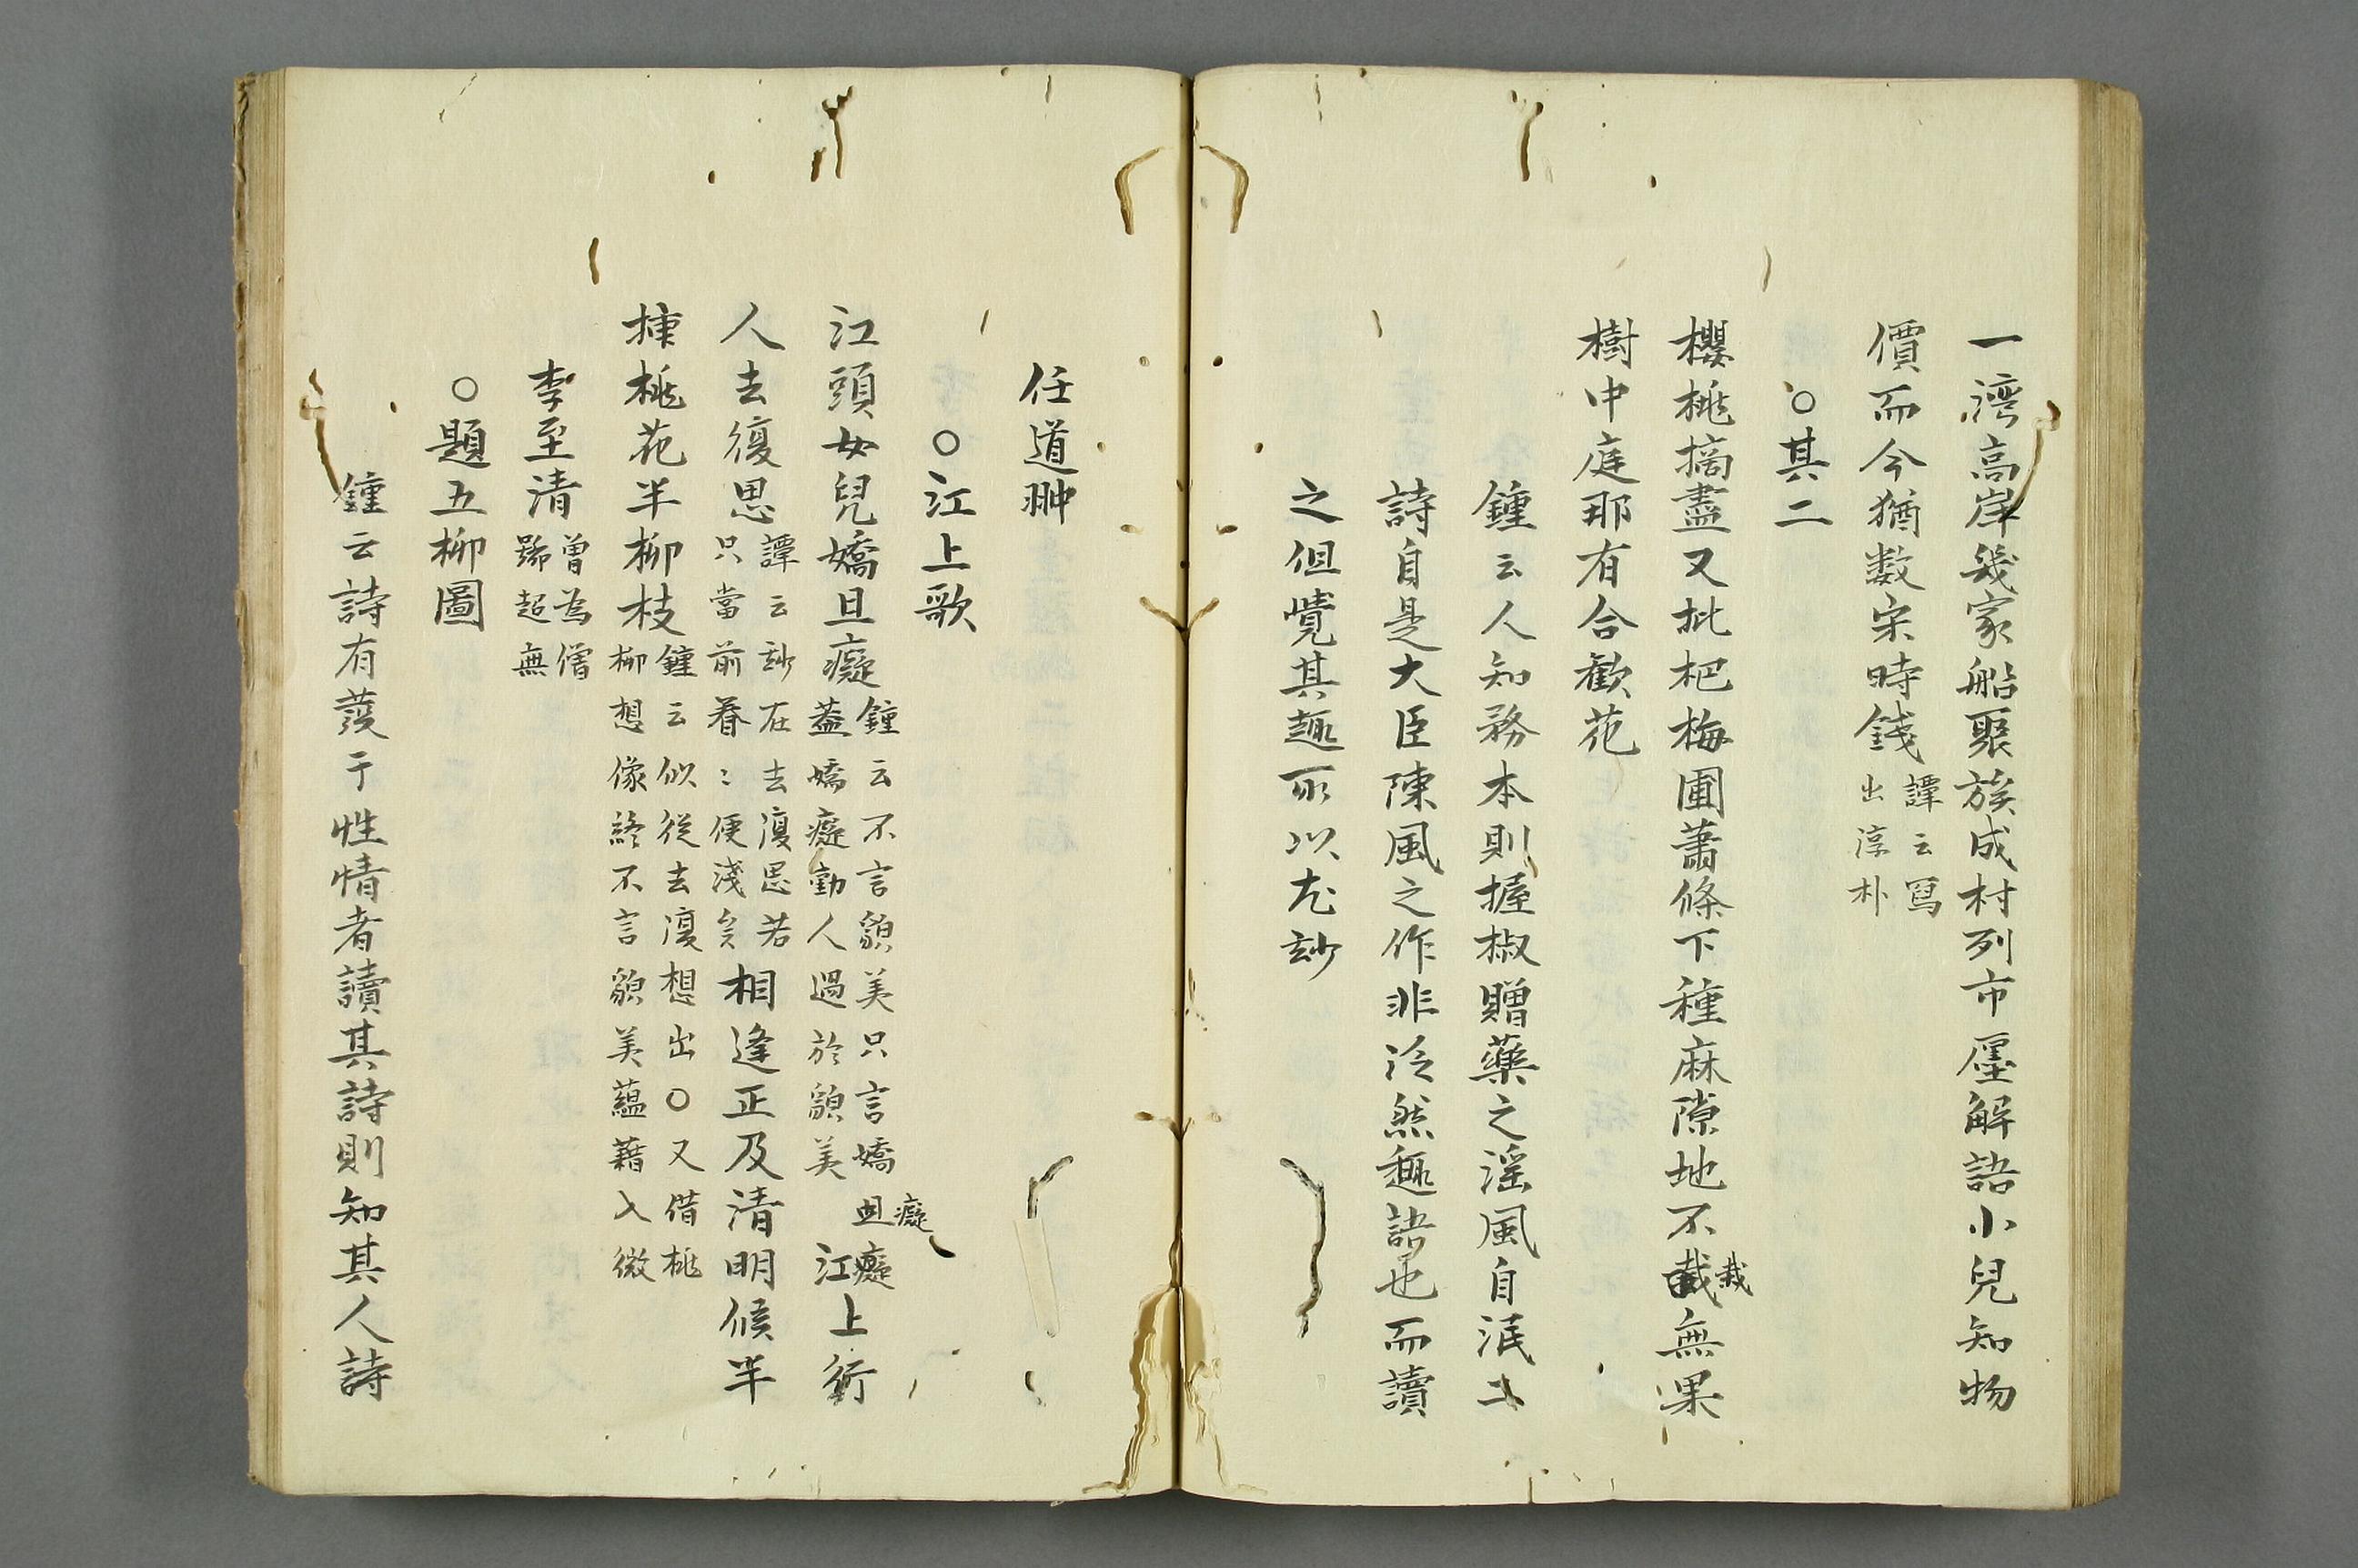 一湾高岸幾家船聚族成村列市廛解語小兒知物
價而今猶数宋時錢譚云冩
出淳朴
○其二
櫻桃摘盡又枇杷梅圃蕭條下種麻隙地不栽無果
栽
樹中庭耶有合歡花
鍾云人知務本則握椒贈藥之滛風自泯二
詩自是大臣陳風之作非泛然趣語也而讀
之但覺其趣所以尤玅
任道翀
○江上歌
江頭女兒嬌且癡鍾云不言貌美只言嬌且癡
癡
蓋嬌癡動人過於貌美江上行
人去復思譚云玅在去復思若
只當前看〻便淺矣相逢正及清明候半
揀桃花半柳枝鍾云似從去復想出○又借桃
柳想像終不言貌美蘊藉入微
李至清曾為僧
號超無
○題五柳圖
鍾云詩有蔉于性情者讀其詩則知其人詩